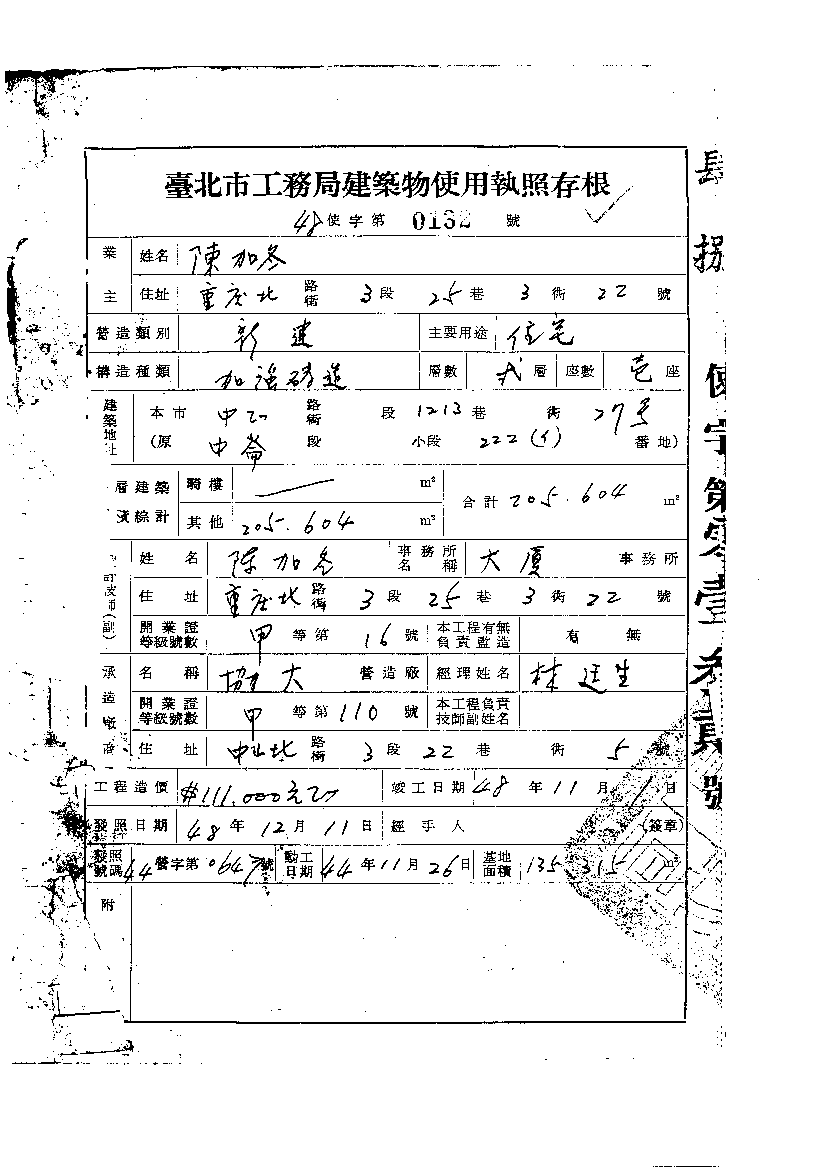 臺北市工務局建築物使用執照存根
48使字第 0132 號
業主 姓名 陳加冬
住址 重慶北 路街 3段 25巷 3衖 22號
營造類別 新建 主要用途 住宅
構造種類 加強磚造 層數 弍層 座數 壱座
建築地址 本市 中山 路街 段 1213巷 衖 27号
(原 中崙 段 小段 222(イ) 番地)
層建築 騎樓 m² 合計 205.604 m²
積綜計 其他 205.604 m²
姓名 陳加冬 事務所名稱 大厦 事務所
技師(副) 住址 重慶北 路街 3段 25巷 3衖 22號
開業證等級號數 甲等第16號 本工程有無負責監造 有 無
承造廠 名稱 協大 營造廠 經理姓名 林廷生
開業證等級號數 甲等第110號 本工程負責技師副姓名
住址 中山北 路街 3段 22巷 衖 5號
工程造價 #111,000元 竣工日期 48年11月1日
發照日期 48年12月11日 經手人 (簽章)
發照號碼 44營字第0647號 動工日期 44年11月26日 基地面積 135.315 m²
附
肆捌使字第零壹參貳號